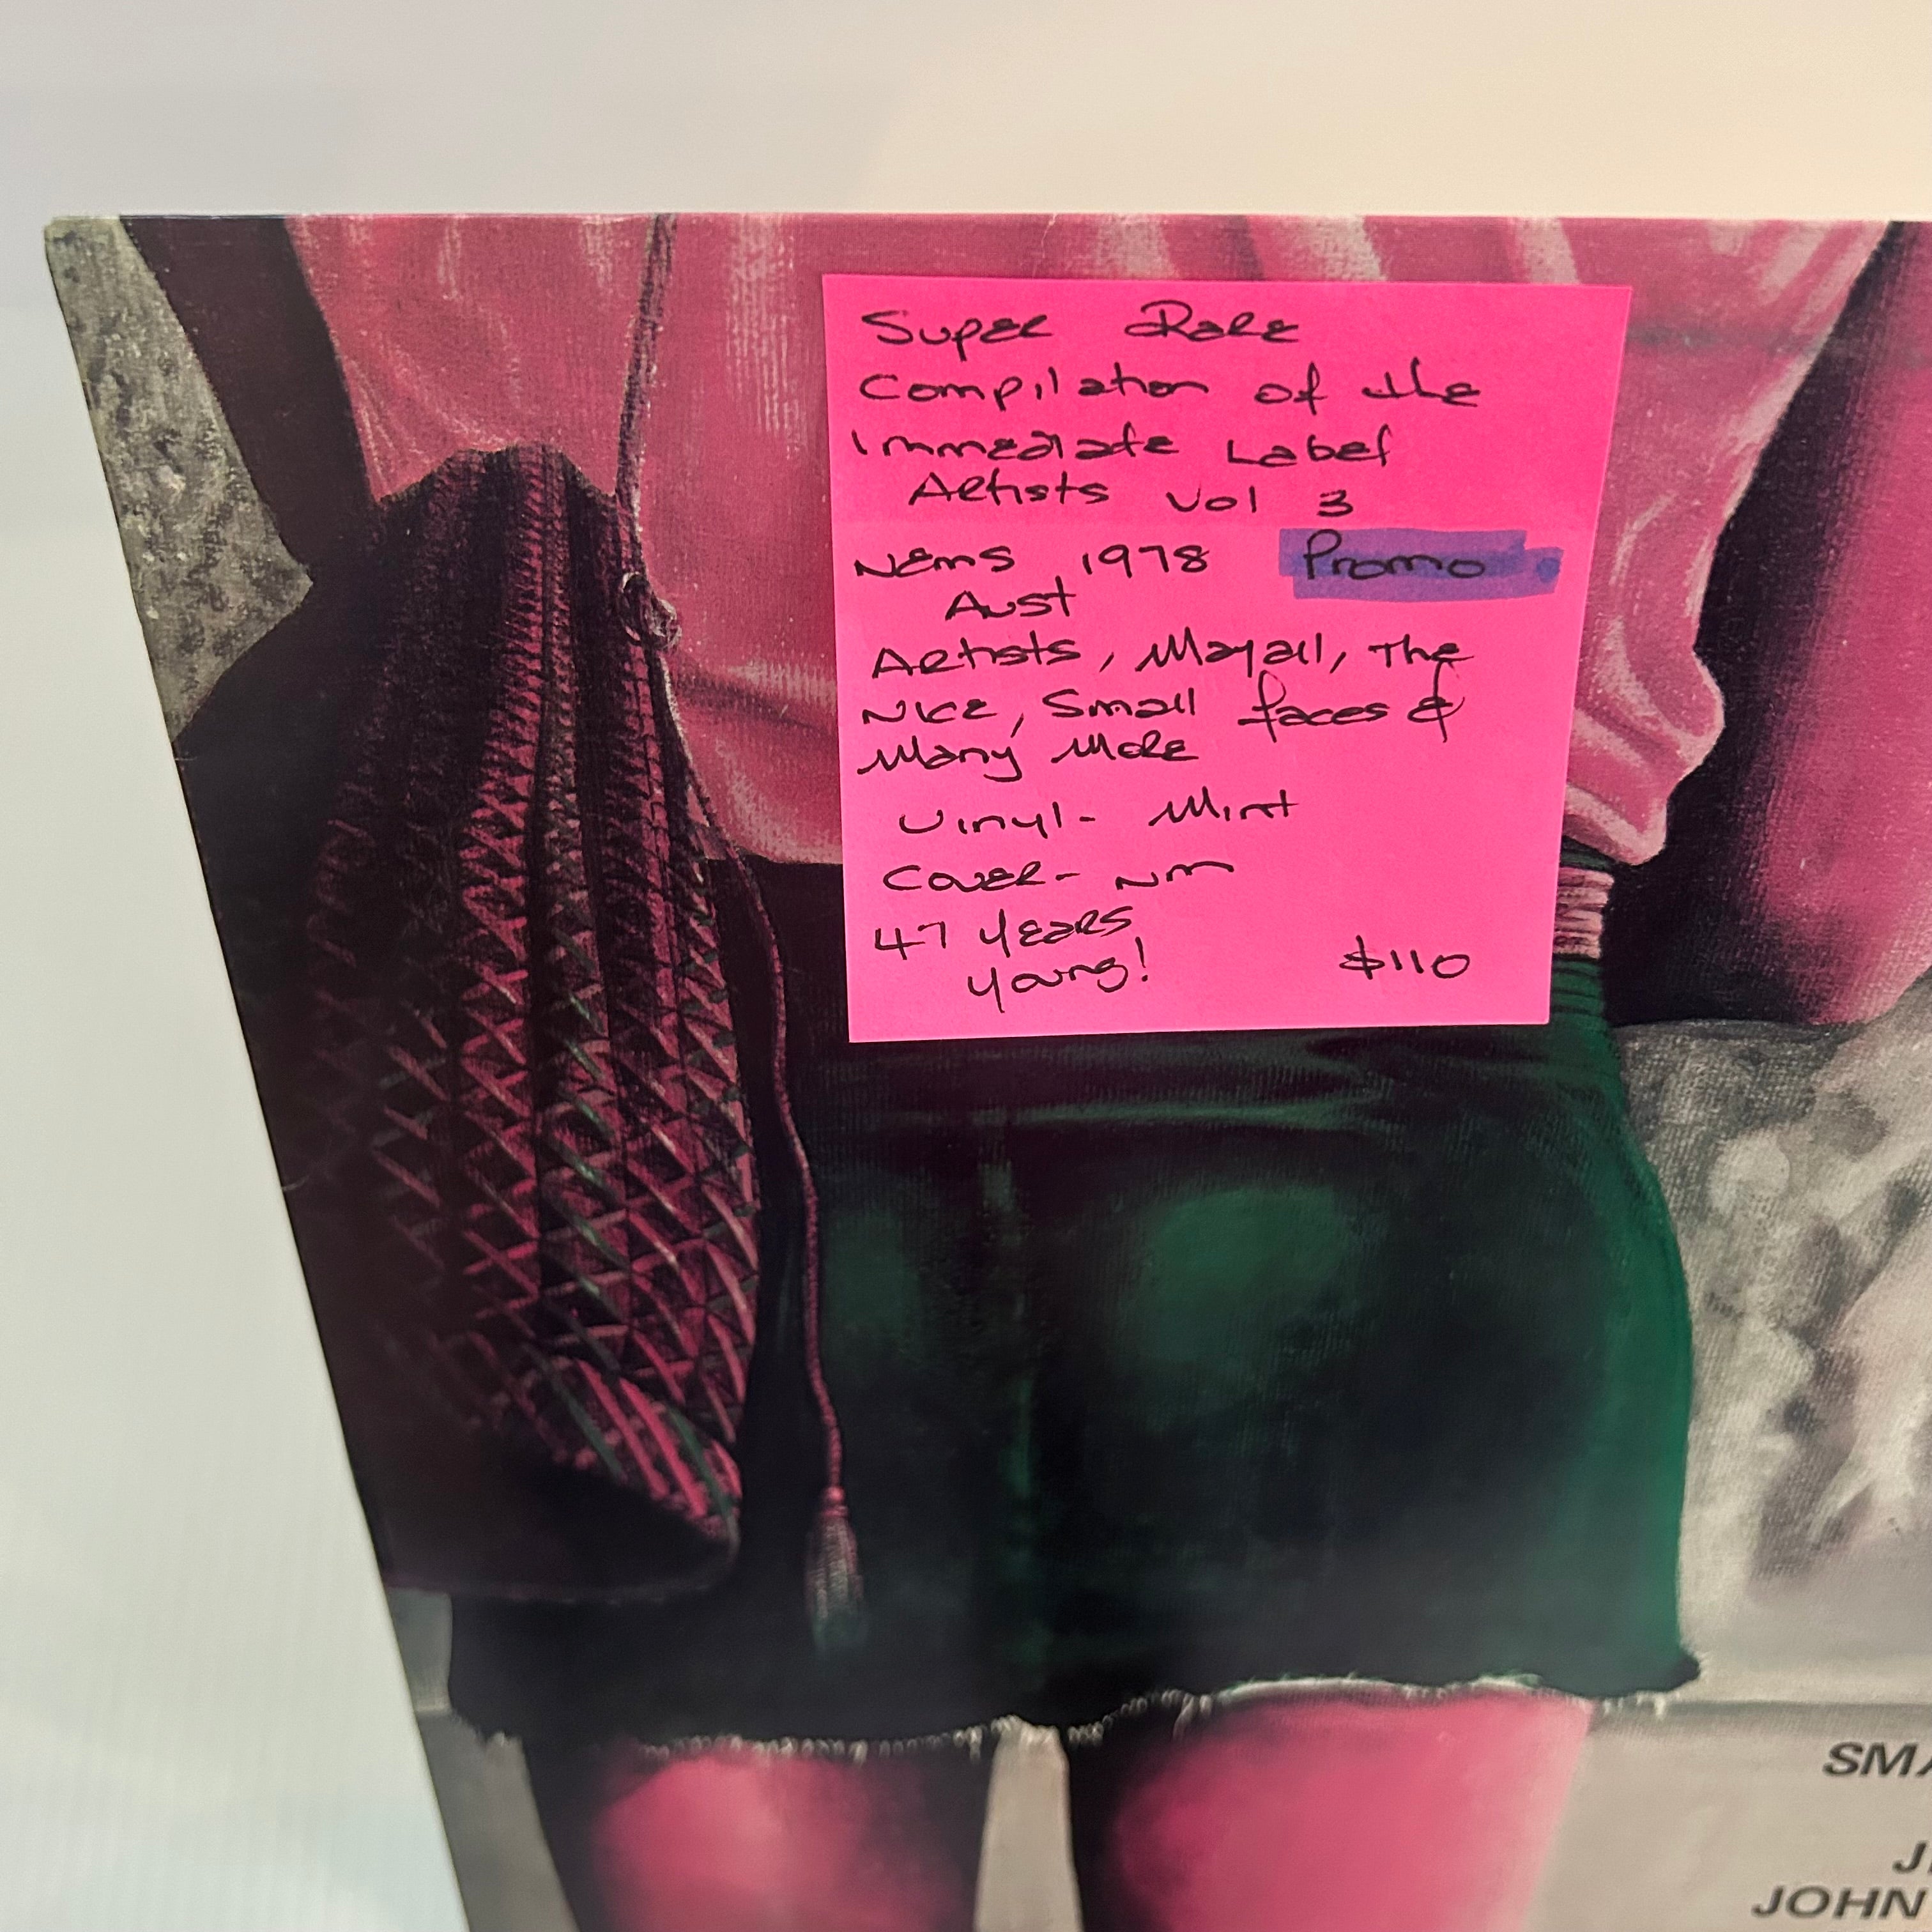 Super Rare
Compilation of the
Immediate Label
Artists Vol 3
Nems 1978 Promo
Aust
Artists, Mayall, The
Nice, Small faces &
Many More
Vinyl- Mint
Cover- NM
47 years
young!
$110
SMA
J
JOHN